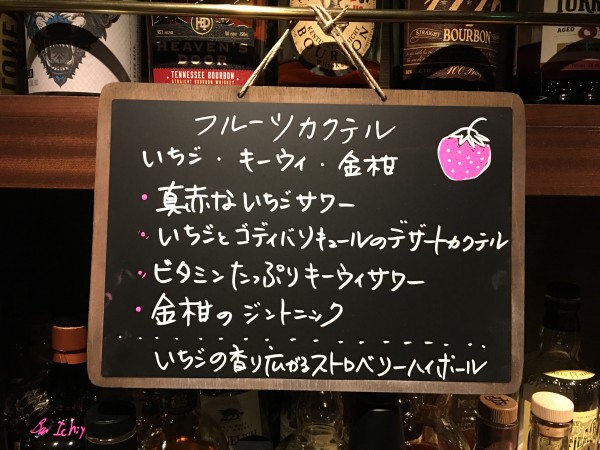 HEAVEN'S
DOOR
TENNESSEE BOURBON
STRAIGHT BOURBON WHISKEY
BOURBON
STRAIGHT
BOURBON
100 Proof
AGED
フルーツカクテル
いちご・キーウィ・金柑
・真赤ないちごサワー
・いちごとゴディバリキュールのデザートカクテル
・ビタミンたっぷりキーウィサワー
・金柑のジントニック
いちごの香り広がるストロベリーハイボール